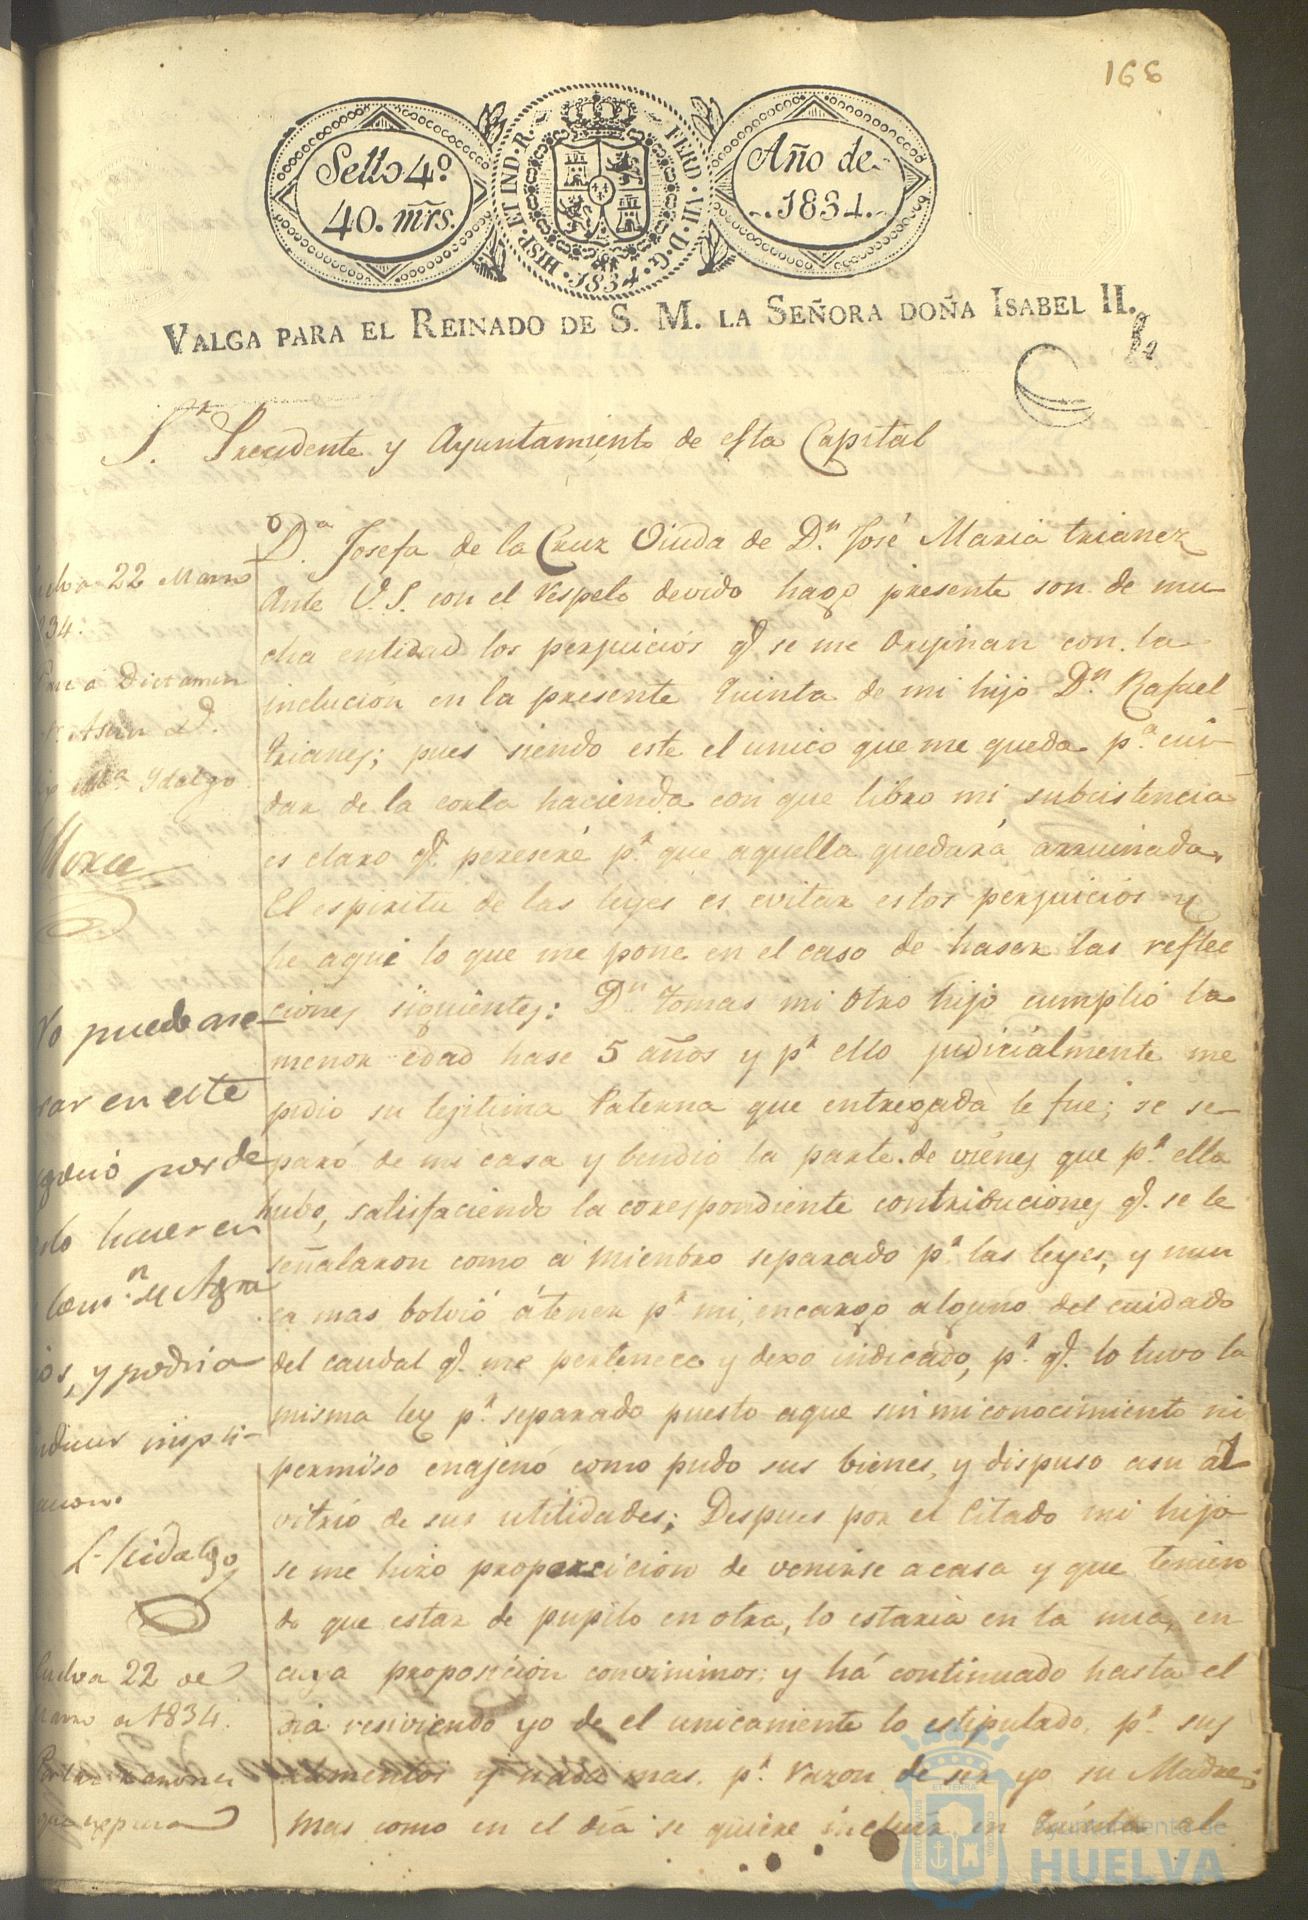 166
Sello 4º.
40. mrs.
HISP. ET IND. R. FERD. VII. D. G. 1834.
Año de
1834.
VALGA PARA EL REINADO DE S. M. LA SEÑORA DOÑA ISABEL II.
S.r Precidente y Ayuntamiento de esta Capital
D.a Josefa de la Cruz Viuda de D.n José Maria trianez
Ante V.S. con el respeto devido hago presente son de mu
cha entidad los perjuicios q.e se me orijinan con la
inclucion en la presente Quinta de mi hijo D.n Rafael
Trianes; pues siendo este el unico que me queda p.a cui
dar de la corta hacienda con que libro mi subcistencia
es claro q.e pereseré p.r que aquella quedará arruinada.
El espiritu de las leyes es evitar estos perjuicios y
he aqui lo que me pone en el caso de haser las reflec
ciones siguientes: D.n Tomas mi otro hijo cumplió la
menor edad hase 5 años y p.r ello judicialmente me
pidio su lejitima Paterna que entregada le fue; se se-
paró de mi casa y bendió la parte de vienes que p.r ella
hubo, satisfaciendo la corespondiente contribuciones q.e se le
señalaron como a miembro separado p.r las leyes, y nun
ca mas bolvió á tener p.r mi, encargo alguno del cuidado
del caudal q.e me pertenece y dexo indicado, p.r q.e lo tuvo la
misma ley p.r separado puesto aque sin mi conocimiento ni
permiso enajenó como pudo sus bienes, y dispuso asu al
vitrio de sus utilidades; Despues por el citado mi hijo
se me hizo proporcicion de venirse a casa y que tenien
do que estar de pupilo en otra, lo estaria en la mia, en
cuya proposicion convinimos; y há continuado hasta el
dia resiviendo yo de el unicamente lo estipulado, p.r sus
alimentos y nada mas. p.r razon de ser yo su Madre;
Mas como en el dia se quiere incluir en Quinta al
22 Marzo
34.
Dictamen
Hidalgo
No puede
en este
por de
hacer en
y podria
L. Hidalgo
22 de
1834.
Ayuntamiento de
HUELVA